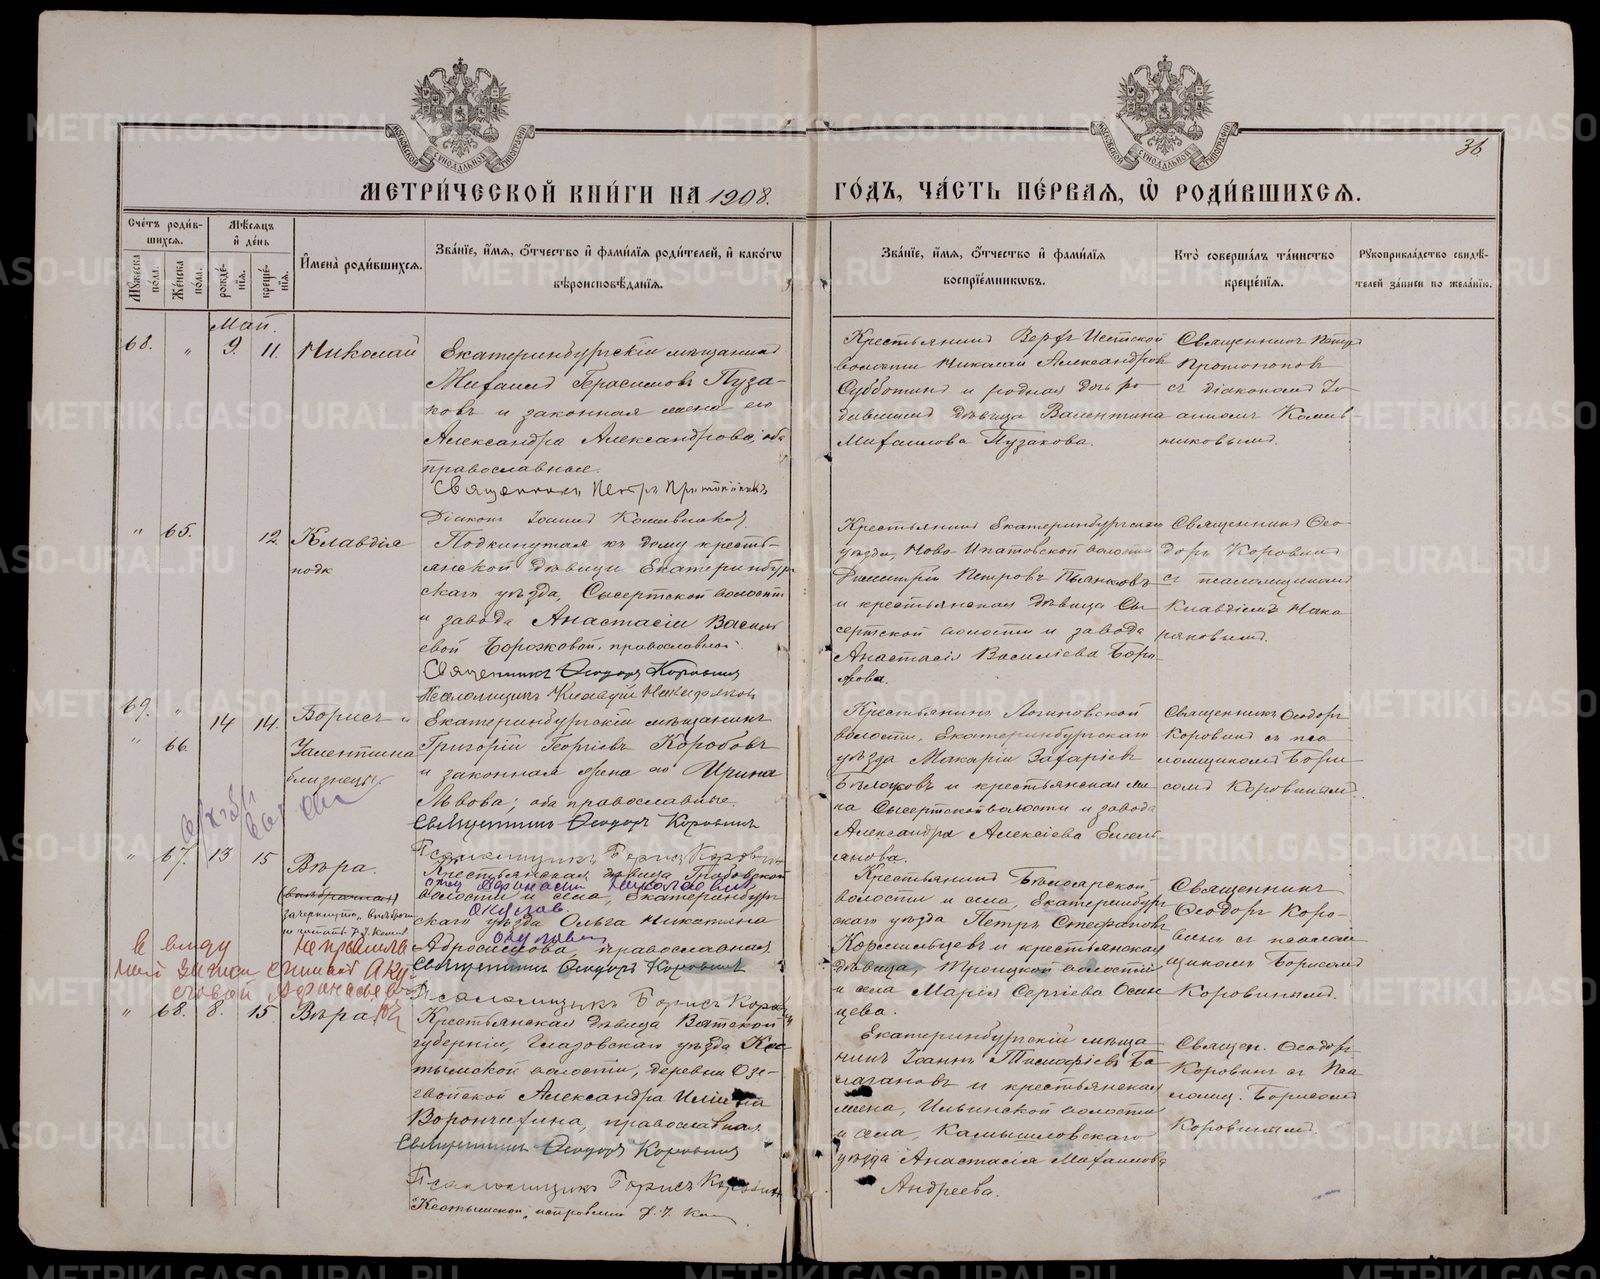 МЕТРИ́ЧЕСКОЙ КНИ́ГИ НА 1908.
ГО́ДЪ, ЧА́СТЬ ПЕ́РВАЯ, Ѡ҆ РОДИ́ВШИХСѦ.
36
Сче́тъ роди́в-
шихсѧ.
Мѣ́сѧцъ
и҆ де́нь
Мꙋ́жеска
по́ла.
Же́нска
по́ла.
рожде́-
нїѧ.
креще́-
нїѧ.
И҆мена̀ роди́вшихсѧ.
Зва́нїе, и҆́мѧ, ѻ҆́тчество и҆ фами́лїѧ роди́телей, и҆ како́гѡ
вѣроисповѣ́данїѧ.
Зва́нїе, и҆́мѧ, ѻ҆́тчество и҆ фами́лїѧ
воспрїе́мникѡвъ.
Кто̀ соверша́лъ та́инство
креще́нїѧ.
Рꙋкоприкла́дство свидѣ́-
телей за́писи по жела́нїю.
Май.
68. " 9. 11. Николай
Екатеринбургскій мѣщанинъ
Михаилъ Герасимовъ Пуза-
ковъ и законная жена его
Александра Александрова; оба
православные.
Священникъ Петръ Протопоповъ
Діаконъ Іоаннъ
Крестьянинъ Верхъ Исетской
волости Николай Александровъ
Субботинъ и родная дочь ро-
дившихъ дѣвица Валентина
Михаилова Пузакова.
Священникъ Петръ
Протопоповъ
съ діакономъ Іо-
анномъ
" 65. 12. Клавдія
подк
Подкинутая къ дому кресть-
янской дѣвицы Екатеринбур-
скаго уѣзда, Сысертской волости
и завода Анастасіи Василь-
евой православной.
Священникъ Ѳеодоръ Коровинъ
Псаломщикъ Клавдій
Крестьянинъ Екатеринбургскаго
уѣзда, Ново-Ипатовской волости
Димитрій Петровъ Пьянковъ
и крестьянская дѣвица Сы-
сертской волости и завода
Анастасія Василіева
Священникъ Ѳео-
доръ Коровинъ
съ псаломщикомъ
Клавдіемъ
69. " 14 14. Борисъ и
" 66. Валентина
близнецы
Екатеринбургскій мѣщанинъ
Григорій Георгіевъ Коробовъ
и законная жена его Ирина
Львова; оба православные.
Священникъ Ѳеодоръ Коровинъ
Псаломщикъ Борисъ Коровинъ
Крестьянинъ Логиновской
волости, Екатеринбургскаго
уѣзда Макарій Захаріевъ
и крестьянская же-
на Сысертской волости и завода
Александра Алексіева Емель-
янова.
Священникъ Ѳеодоръ
Коровинъ съ пса-
ломщикомъ Бори-
сомъ Коровинымъ.
" 67. 13 15 Вѣра.
Крестьянская дѣвица Грабовской
отец Афанасий Николаевич
волости и села, Екатеринбург-
Окулов.
скаго уѣзда Ольга Никитина
Окулова
Абросимова православная
Священникъ Ѳеодоръ Коровинъ
Псаломщикъ Борисъ Коровинъ
Крестьянинъ Бѣлоярской
волости и села, Екатеринбург-
скаго уѣзда Петръ Стефановъ
Кормильцевъ и крестьянская
дѣвица, Троицкой волости
и села Марія Сергіева Осин-
цева.
Священникъ
Ѳеодоръ Коро-
винъ съ псалом-
щикомъ Борисомъ
Коровинымъ.
" 68. 8. 15. Вѣра
Крестьянская дѣвица Вятской
губерніи, Глазовскаго уѣзда
волости, деревни
Александра
Ворончихина, православная.
Священникъ Ѳеодоръ Коровинъ
Псаломщикъ Борисъ Коровинъ
Екатеринбургскій мѣща-
нинъ Іоаннъ Тимофіевъ Ба-
лагановъ и крестьянская
жена, Ильинской волости
и села, Камышловскаго
уѣзда Анастасія Михаилова
Андреева.
Священ. Ѳеодоръ
Коровинъ съ пса-
ломщ. Борисомъ
Коровинымъ.
METRIKI.GASO-URAL.RU